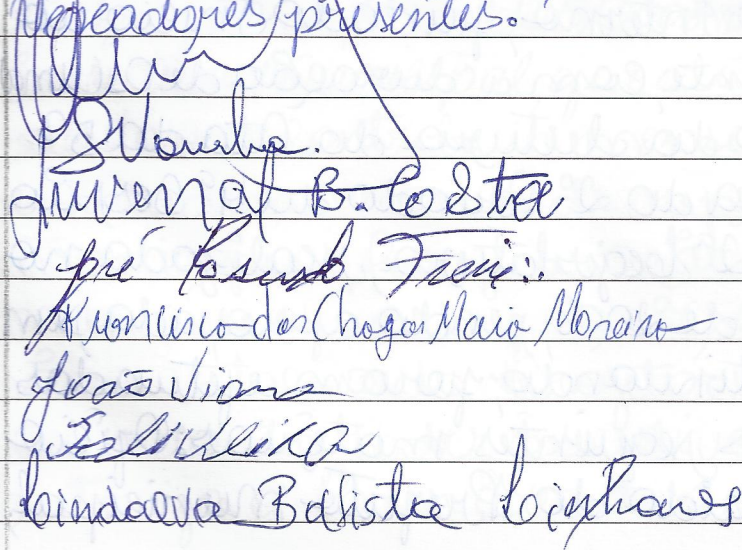 Vereadores presentes.
Juvenal B. Costa
José Rosendo Freire
Francisco das Chagas Maia Moreira
João Viana
Lindalva Batista Linhares